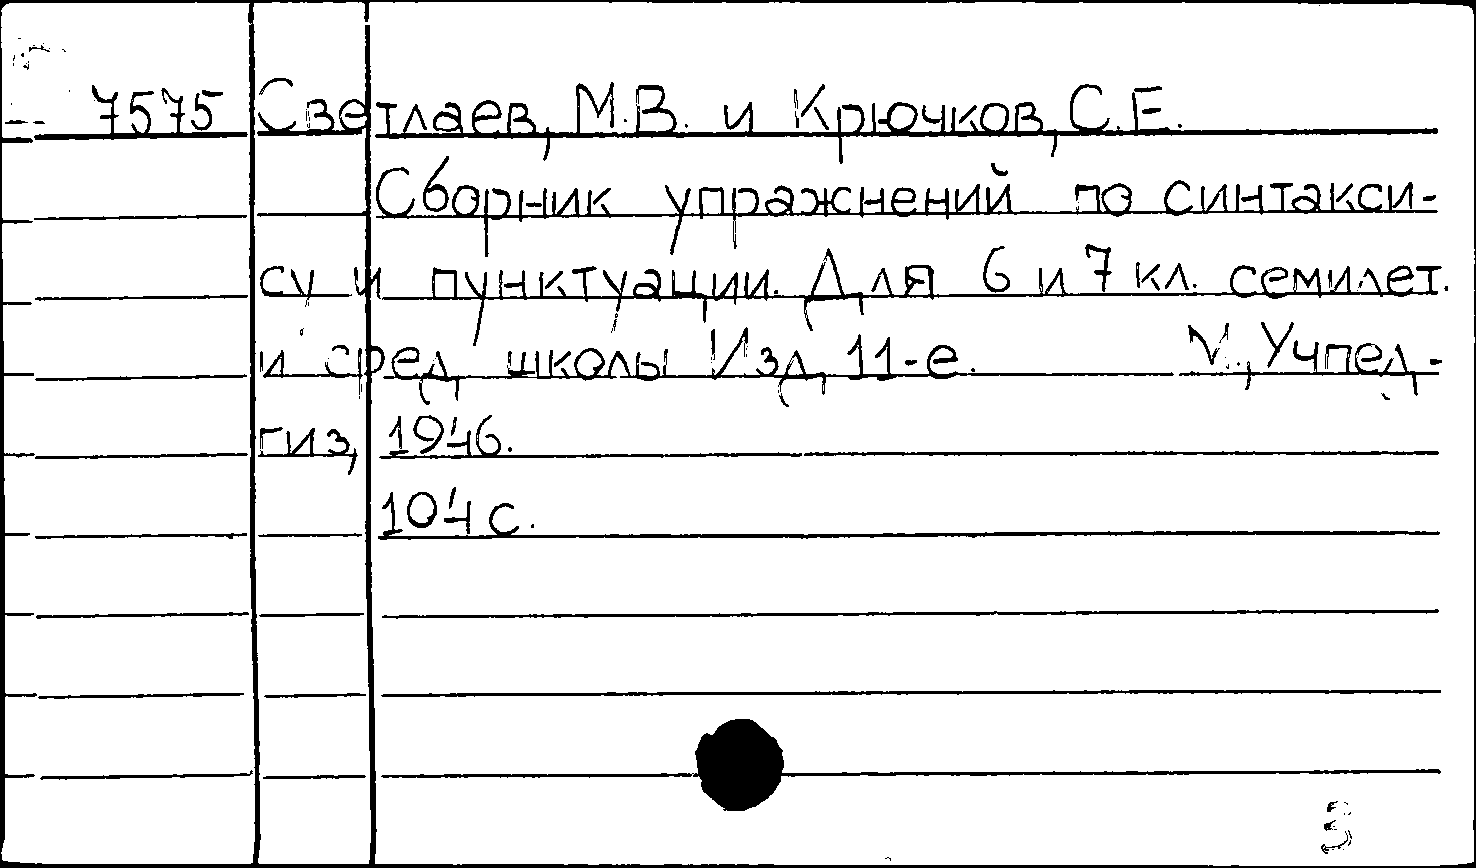 7575 Светлаев, М.В. и Крючков, С.Е.
Сборник упражнений по синтакси-
су и пунктуации. Для 6 и 7 кл. семилет.
и сред. школы Изд. 11-е. М., Учпед-
гиз, 1946.
104 с.